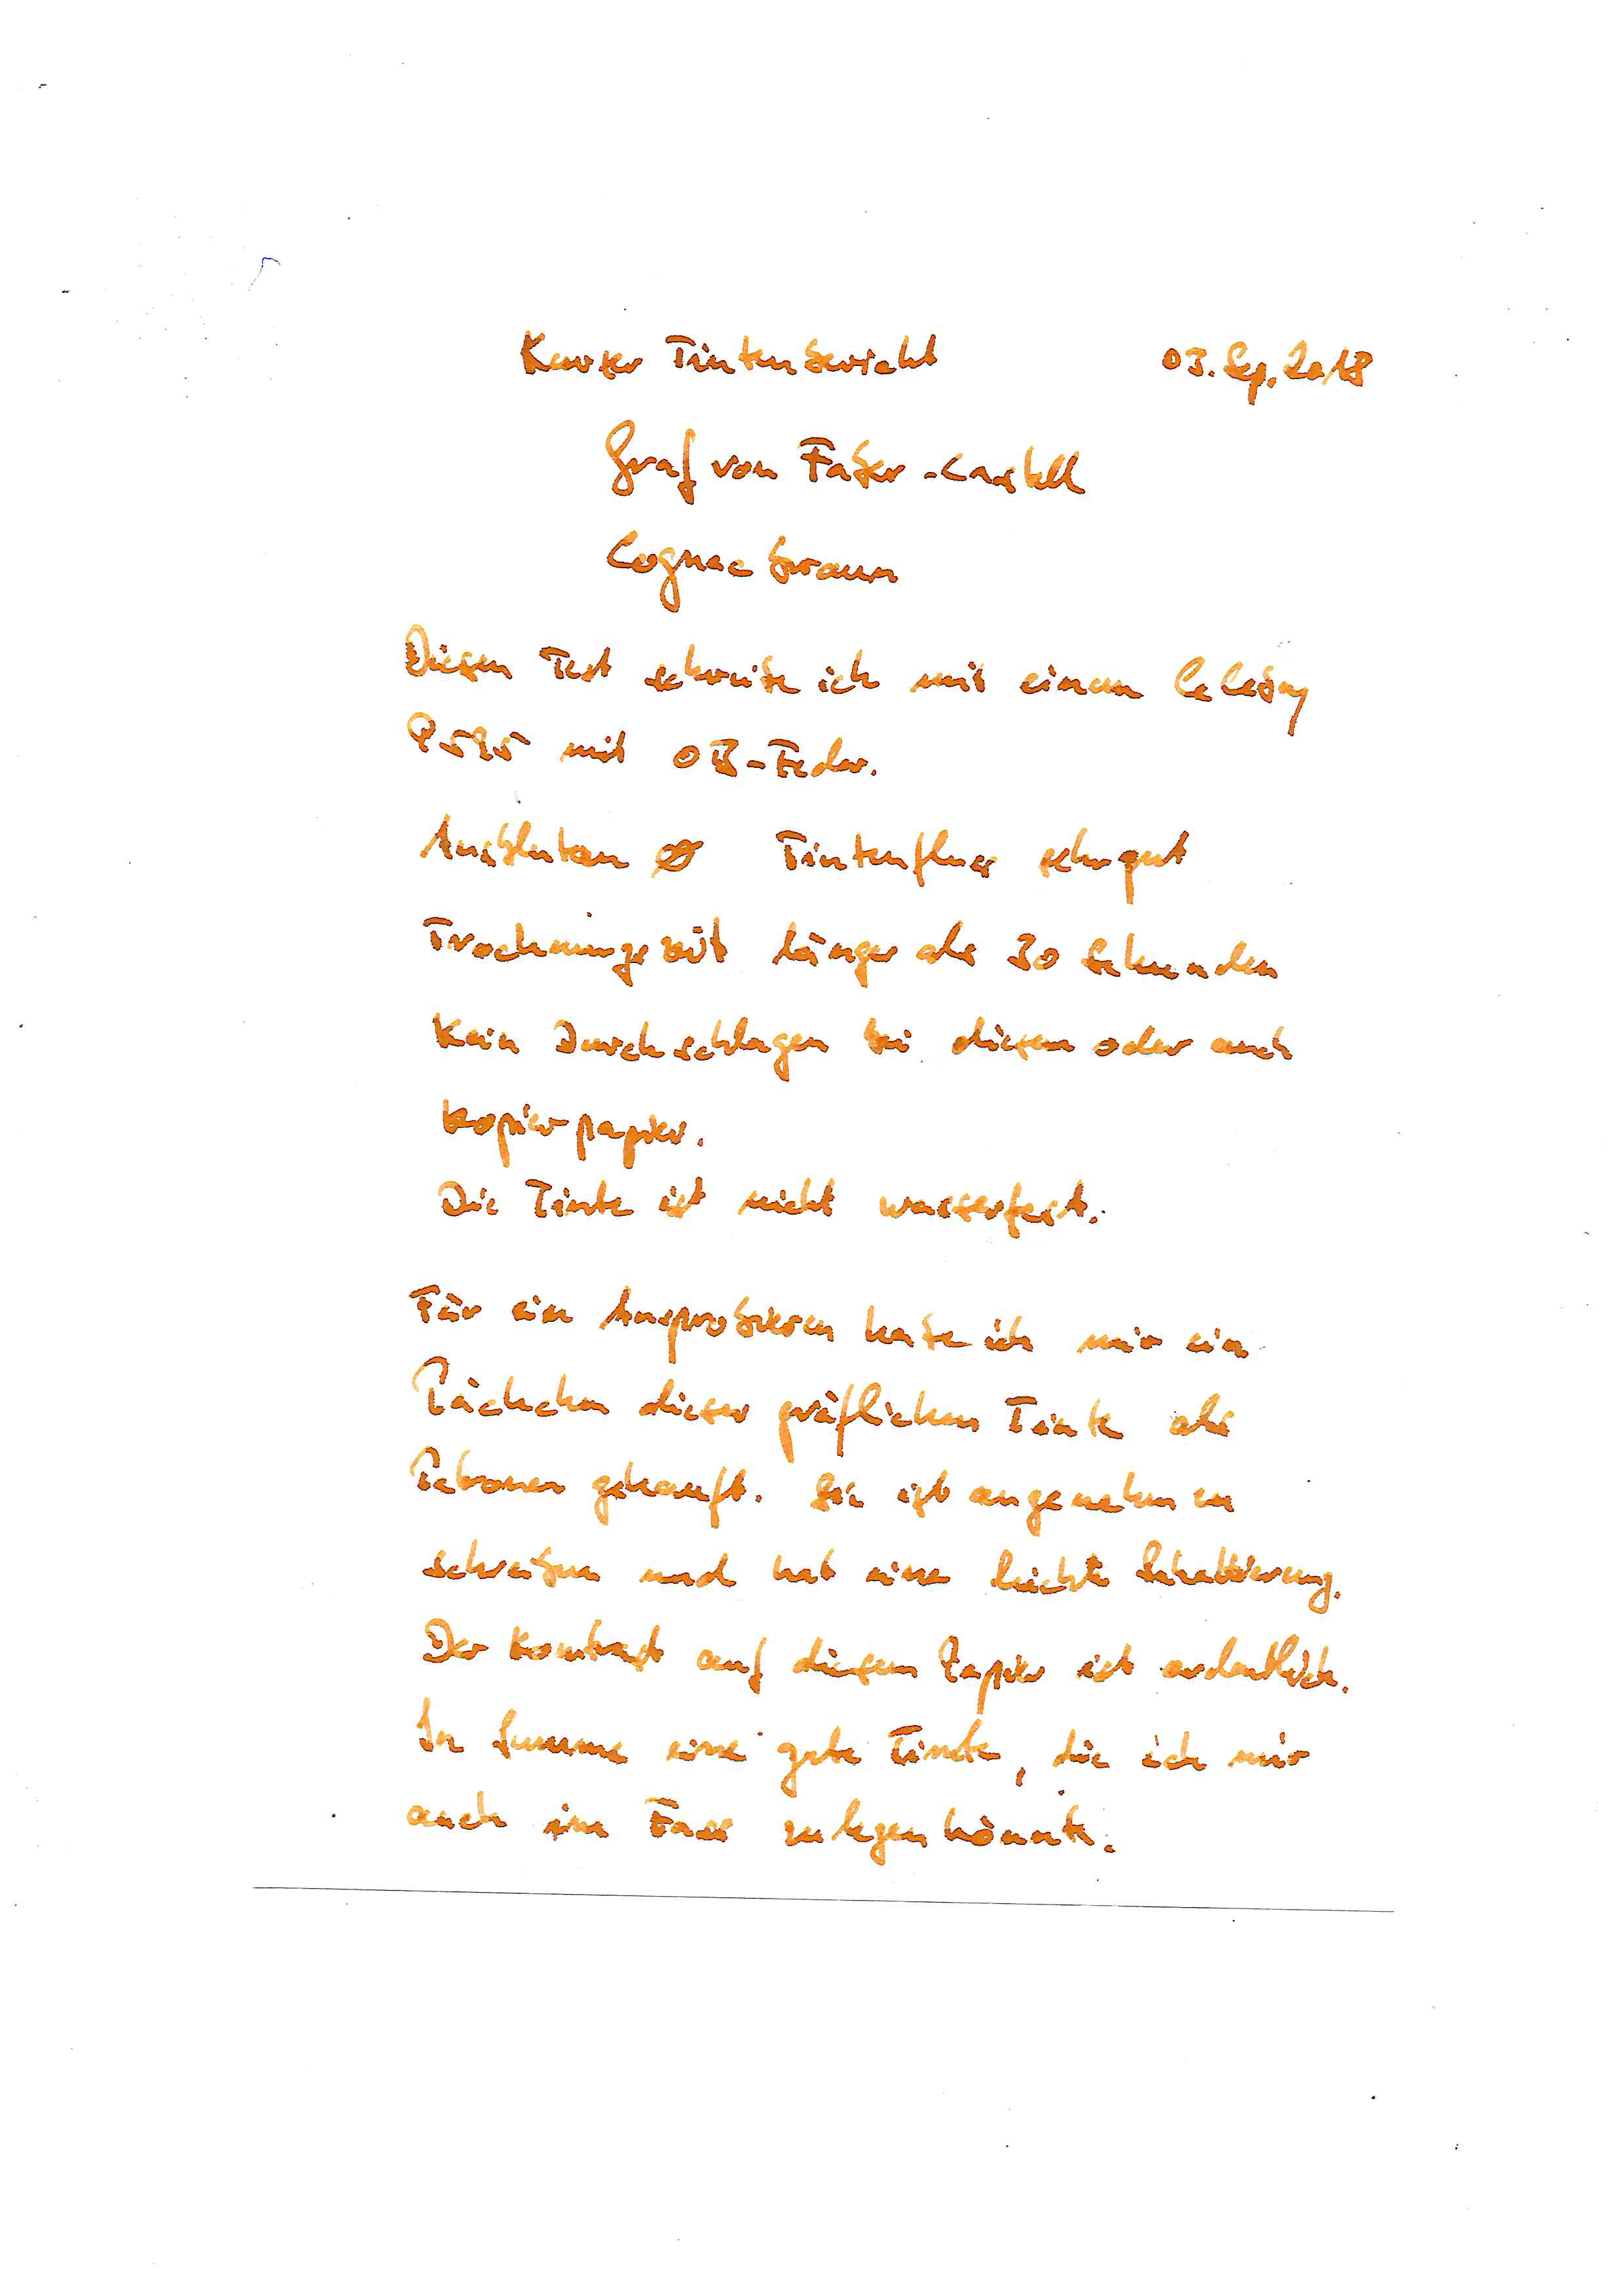 Kurzer Tintenbericht 03. Sep. 2018
Graf von Faber-Castell
Cognac braun
Diesen Text schreibe ich mit einem Geha
mit OB-Feder.
Ausbluten Ø Tintenfluss sehr gut
Trocknungszeit länger als 30 Sekunden
Kein Durchschlagen bei diesem oder auch
Kopierpapier.
Die Tinte ist nicht wasserfest.
Für ein Ausprobieren habe ich mir ein
Päckchen dieser gräflichen Tinte als
Patronen gekauft. Sie ist angenehm zu
schreiben und hat eine leichte Schattierung.
Der Kontrast auf diesem Papier ist ordentlich.
In Summe eine gute Tinte, die ich mir
auch im Fass zulegen könnte.